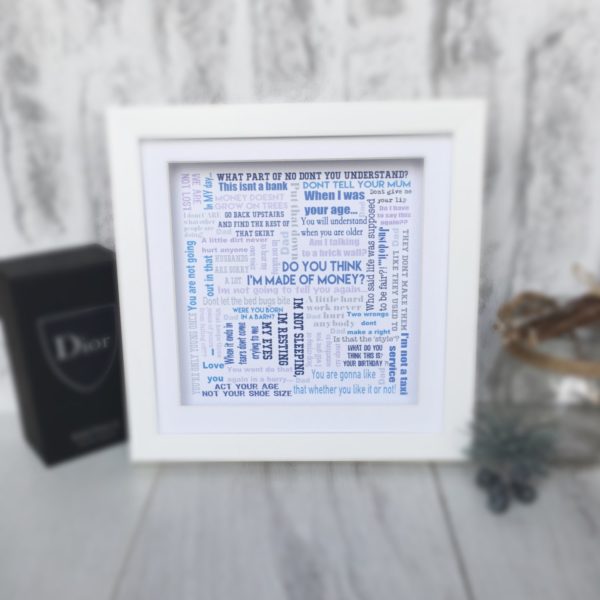 WHAT PART OF NO DONT YOU UNDERSTAND?
This isnt a bank
DONT TELL YOUR MUM
MONEY DOESNT
GROW ON TREES
When I was
your age...
Dont give me
your lip
GO BACK UPSTAIRS
AND FIND THE REST OF
THAT SKIRT
You will understand
when you are older
Do I have
to say this
again??
WE ARE
NOT LOST
in MY day...
Put that down
Dad
A little dirt never
hurt anyone
Am I talking
to a brick wall?
HUSBANDS
ARE SORRY
A LOT
DO YOU THINK
I'M MADE OF MONEY?
Im not going to tell you again...
Who said life was supposed
to be fair?!
Just do it...
THEY DONT MAKE THEM
LIKE THEY USED TO
You are not going
out in that
Dont let the bed bugs bite
A little hard
work never
hurt
anybody
WERE YOU BORN
IN A BARN?
IM NOT SLEEPING,
IM RESTING
MY EYES
Two wrongs
dont
make a right
Is that the 'style'?
WHAT DO YOU
THINK THIS IS?
YOUR BIRTHDAY ?
I'm not a taxi
service
When it ends in
tears dont come
crying to me
I
Love
you
You wont do that
again in a hurry...
Dad
You are gonna like
that whether you like it or not!
ACT YOUR AGE
NOT YOUR SHOE SIZE
Dior